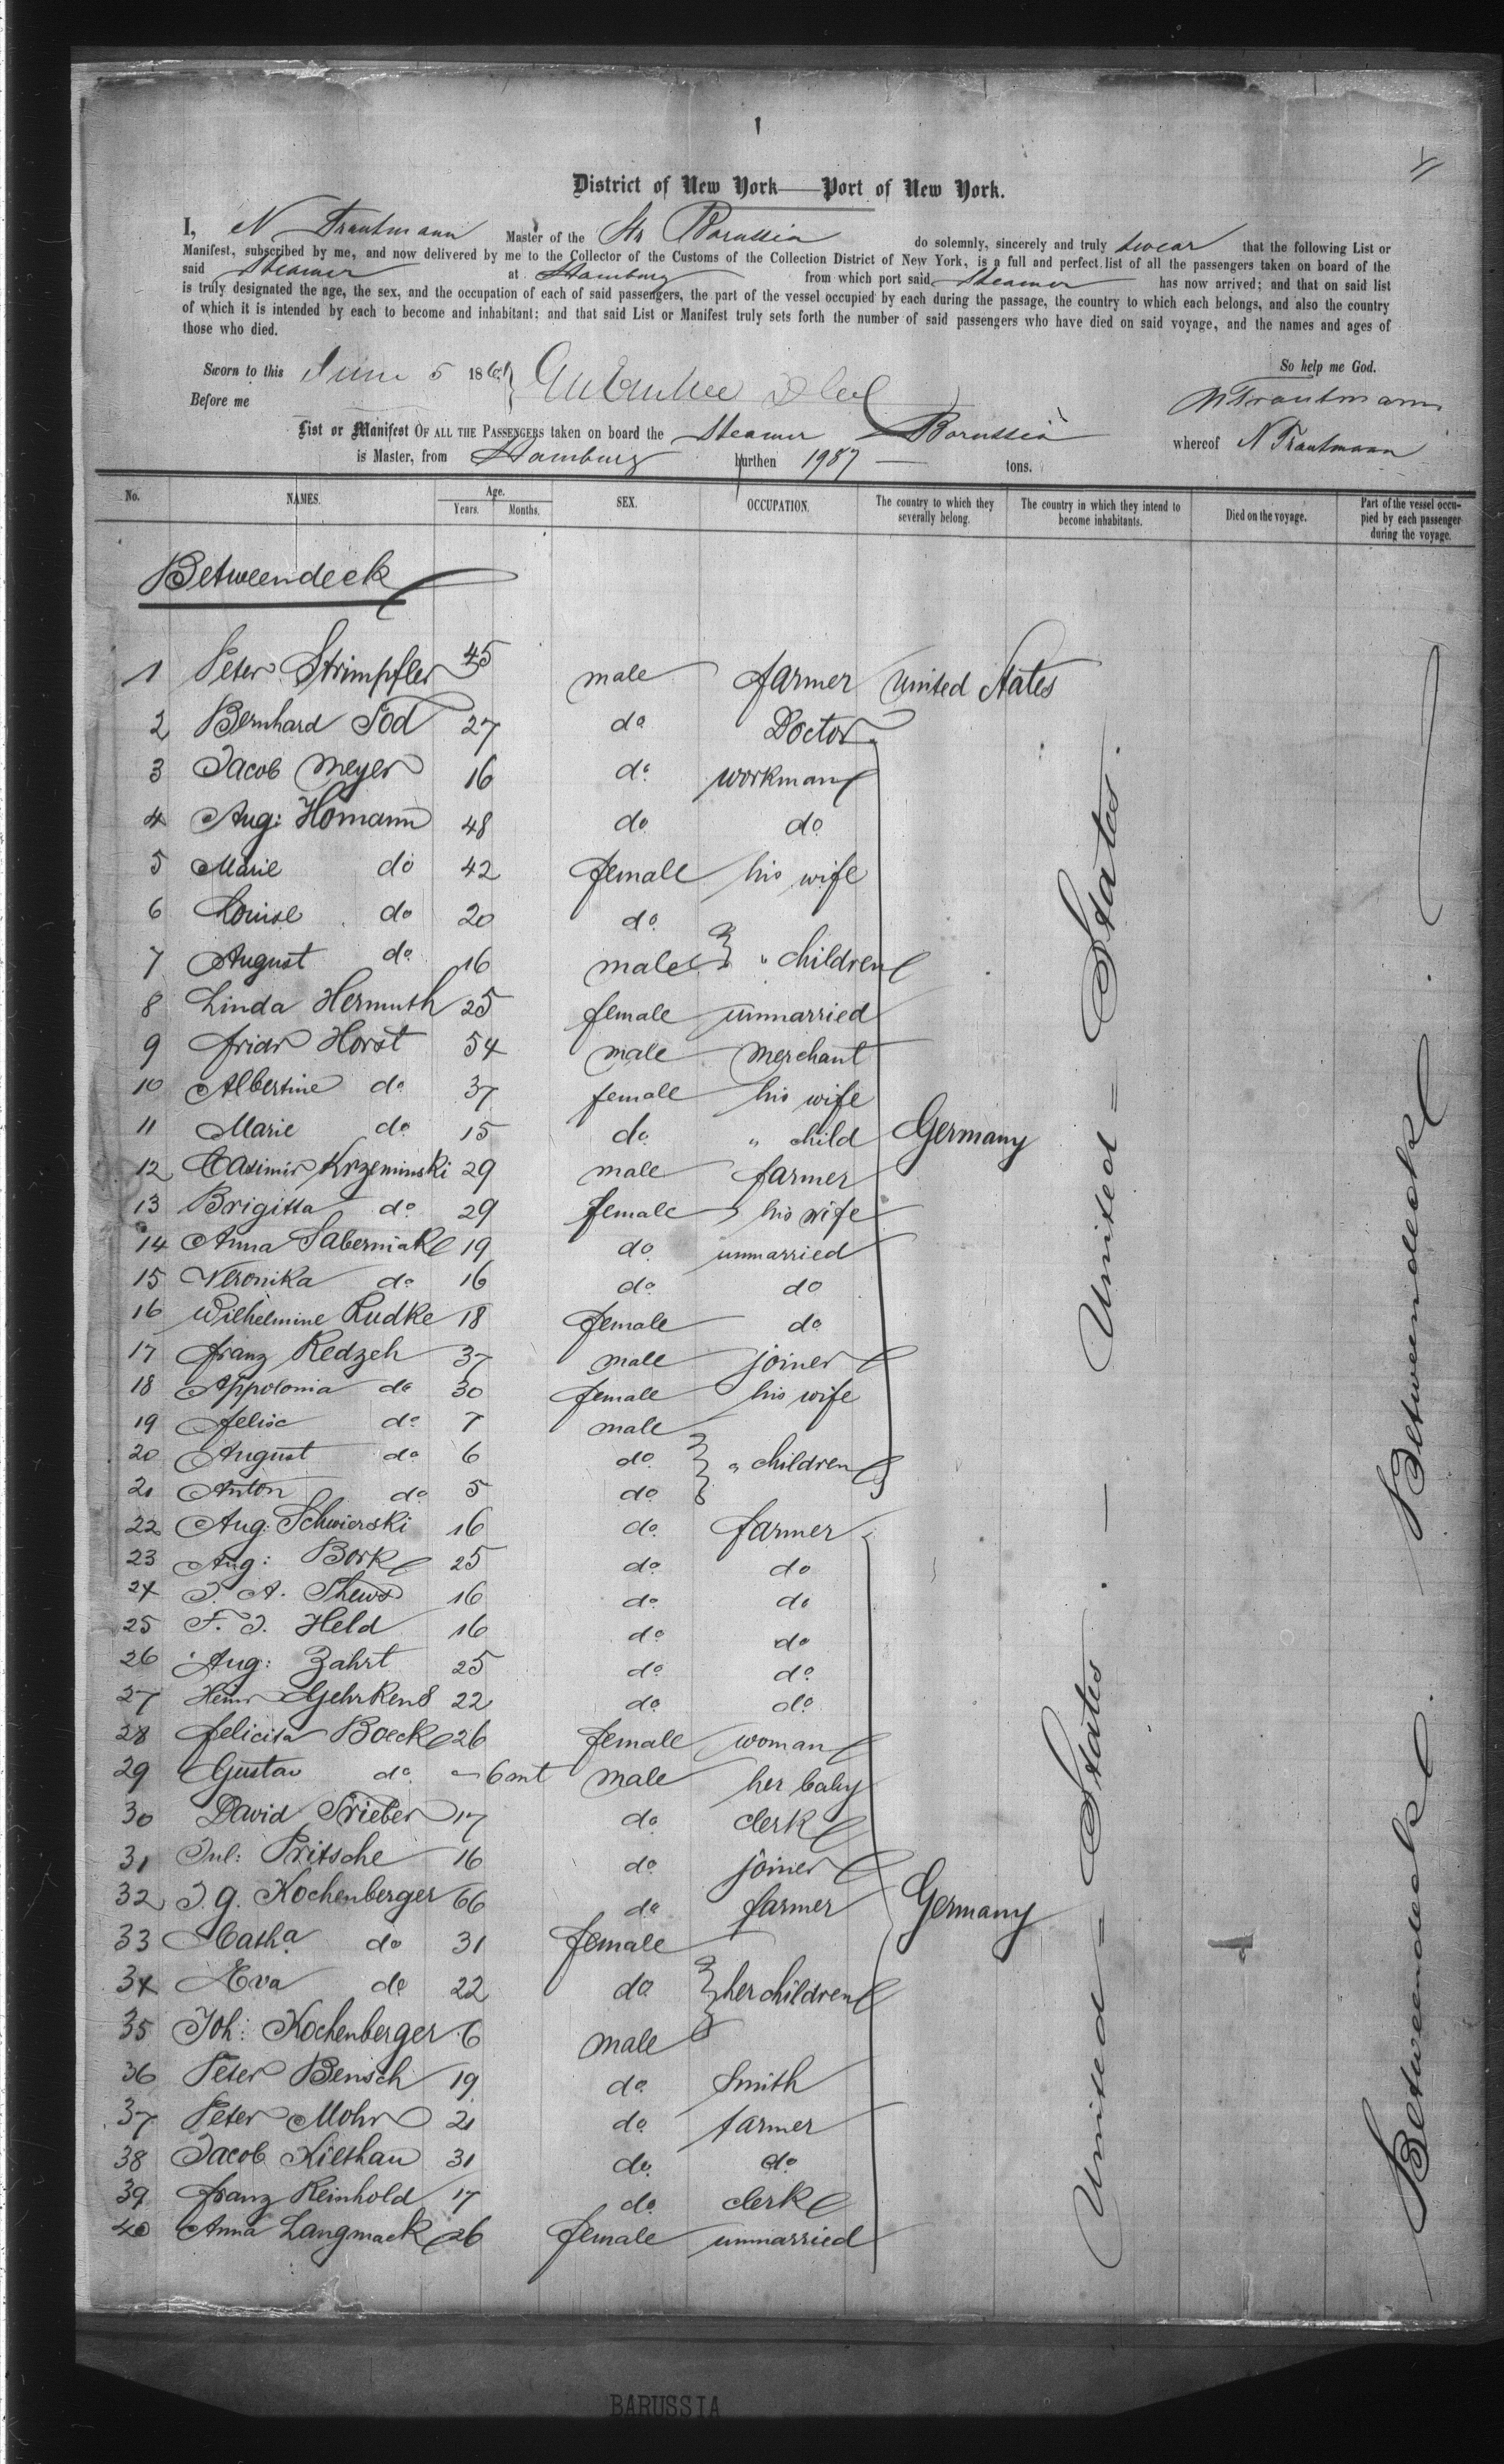 District of New York — Port of New York.
I, N Trautmann Master of the Str Borussia do solemnly, sincerely and truly swear that the following List or
Manifest, subscribed by me, and now delivered by me to the Collector of the Customs of the Collection District of New York, is a full and perfect list of all the passengers taken on board of the
said Steamer at Hamburg from which port said Steamer has now arrived; and that on said list
is truly designated the age, the sex, and the occupation of each of said passengers, the part of the vessel occupied by each during the passage, the country to which each belongs, and also the country
of which it is intended by each to become and inhabitant; and that said List or Manifest truly sets forth the number of said passengers who have died on said voyage, and the names and ages of
those who died.
So help me God.
Sworn to this June 5 1861
Before me
N Trautmann
List or Manifest OF ALL THE PASSENGERS taken on board the Steamer Borussia whereof N Trautmann
is Master, from Hamburg burthen 1987 — tons.
No. NAMES. Age. Years. Months. SEX. OCCUPATION. The country to which they severally belong. The country in which they intend to become inhabitants. Died on the voyage. Part of the vessel occupied by each passenger during the voyage.
Betweendeck
1 Peter Strimpfler 45 male farmer United States
2 Bernhard Tod 27 do Doctor
3 Jacob Meyer 16 do workman
4 Aug: Homann 48 do do
5 Marie do 42 female his wife
6 Louise do 20 do
7 August do 16 male " children
8 Linda Hermuth 25 female unmarried
9 Fridr Horst 54 male merchant
10 Albertine do 37 female his wife
11 Marie do 15 do " child Germany
12 Casimir Krzeminski 29 male farmer
13 Brigitta do 29 female his wife
14 Anna Saberniak 19 do unmarried
15 Veronika do 16 do do
16 Wilhelmine Ludke 18 female do
17 Franz Redzeh 37 male joiner
18 Appolonia do 30 female his wife
19 Felix do 7 male
20 August do 6 do " children
21 Anton do 5 do
22 Aug: Schwierski 16 do farmer
23 Aug: Bork 25 do do
24 J. A. Thews 16 do do
25 F. J. Held 16 do do
26 Aug: Zahrt 25 do do
27 Heinr Gehrkens 22 do do
28 Felicita Boeck 26 female woman
29 Gustav do 6 mt male her baby
30 David Priebe 17 do clerk
31 Jul: Pritsche 16 do joiner
32 J. G. Kochenberger 66 do farmer Germany
33 Catha do 31 female
34 Eva do 22 do her children
35 Joh: Kochenberger 6 male
36 Peter Bensch 19 do Smith
37 Peter Mohr 21 do farmer
38 Jacob Kiethau 31 do do
39 Franz Reinhold 17 do clerk
40 Anna Langmack 26 female unmarried
United = States.
United = States.
Betweendeck.
Betweendeck.
BARUSSIA